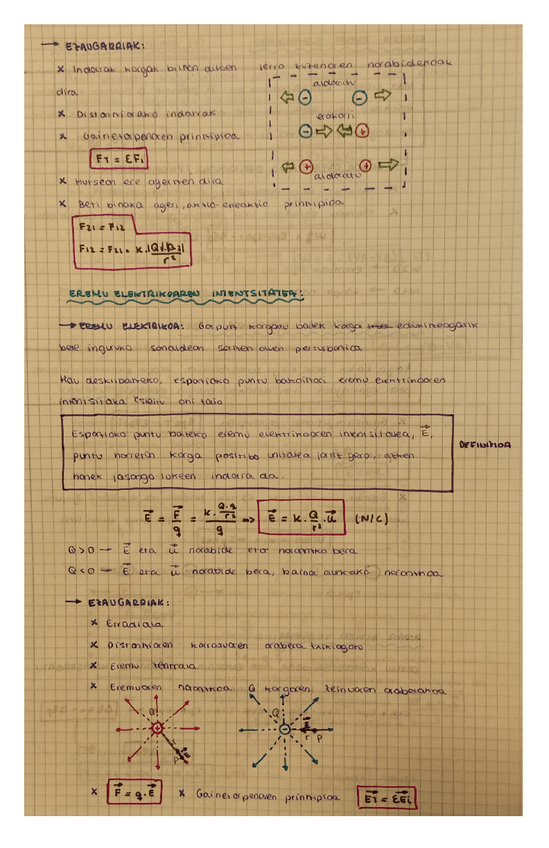 → EZAUGARRIAK:
× Indarrak kargak biltzen dituen lerro zuzenaren norabidekoak
dira
aldaratu
× Distantziarako indarrak
erakarri
× Gainezarpenaren printzipioa
FT = ΣFi
aldaratu
× Hutsean ere agertzen dira
× Beti binaka ageri, akzio-erreakzio printzipioa
F21 = F12
F12 = F21 = k·|Q1·Q2|/r²
EREMU ELEKTRIKOAREN INTENTSITATEA:
→ EREMU ELEKTRIKOA: Gorputz kargatu batek karga edukitzeagatik
bere inguruko
Hau deskribatzeko, espazioko puntu bakoitzari eremu elektrikoaren
intentsitatea
Espazioko puntu bateko eremu elektrikoaren intentsitatea, E⃗,
puntu horretan karga positibo unitatea jarriz gero, azken
honek jasango lukeen indarra da.
DEFINIZIOA
E⃗ = F⃗/q = k·Q·q/r²/q => E⃗ = k·Q/r²·u⃗ (N/C)
Q>0 → E⃗ eta u⃗ norabide eta noranzko bera
Q<0 → E⃗ eta u⃗ norabide bera, baina aurkako noranzkoa
→ EZAUGARRIAK:
× Erradiala
× Distantziaren karratuaren arabera txikiagotu
× Eremu zentrala
× Eremuaren noranzkoa Q kargaren zeinuaren araberakoa
Q Q
r P r P
× F⃗ = q·E⃗ × Gainezarpenaren printzipioa E⃗T = ΣE⃗i